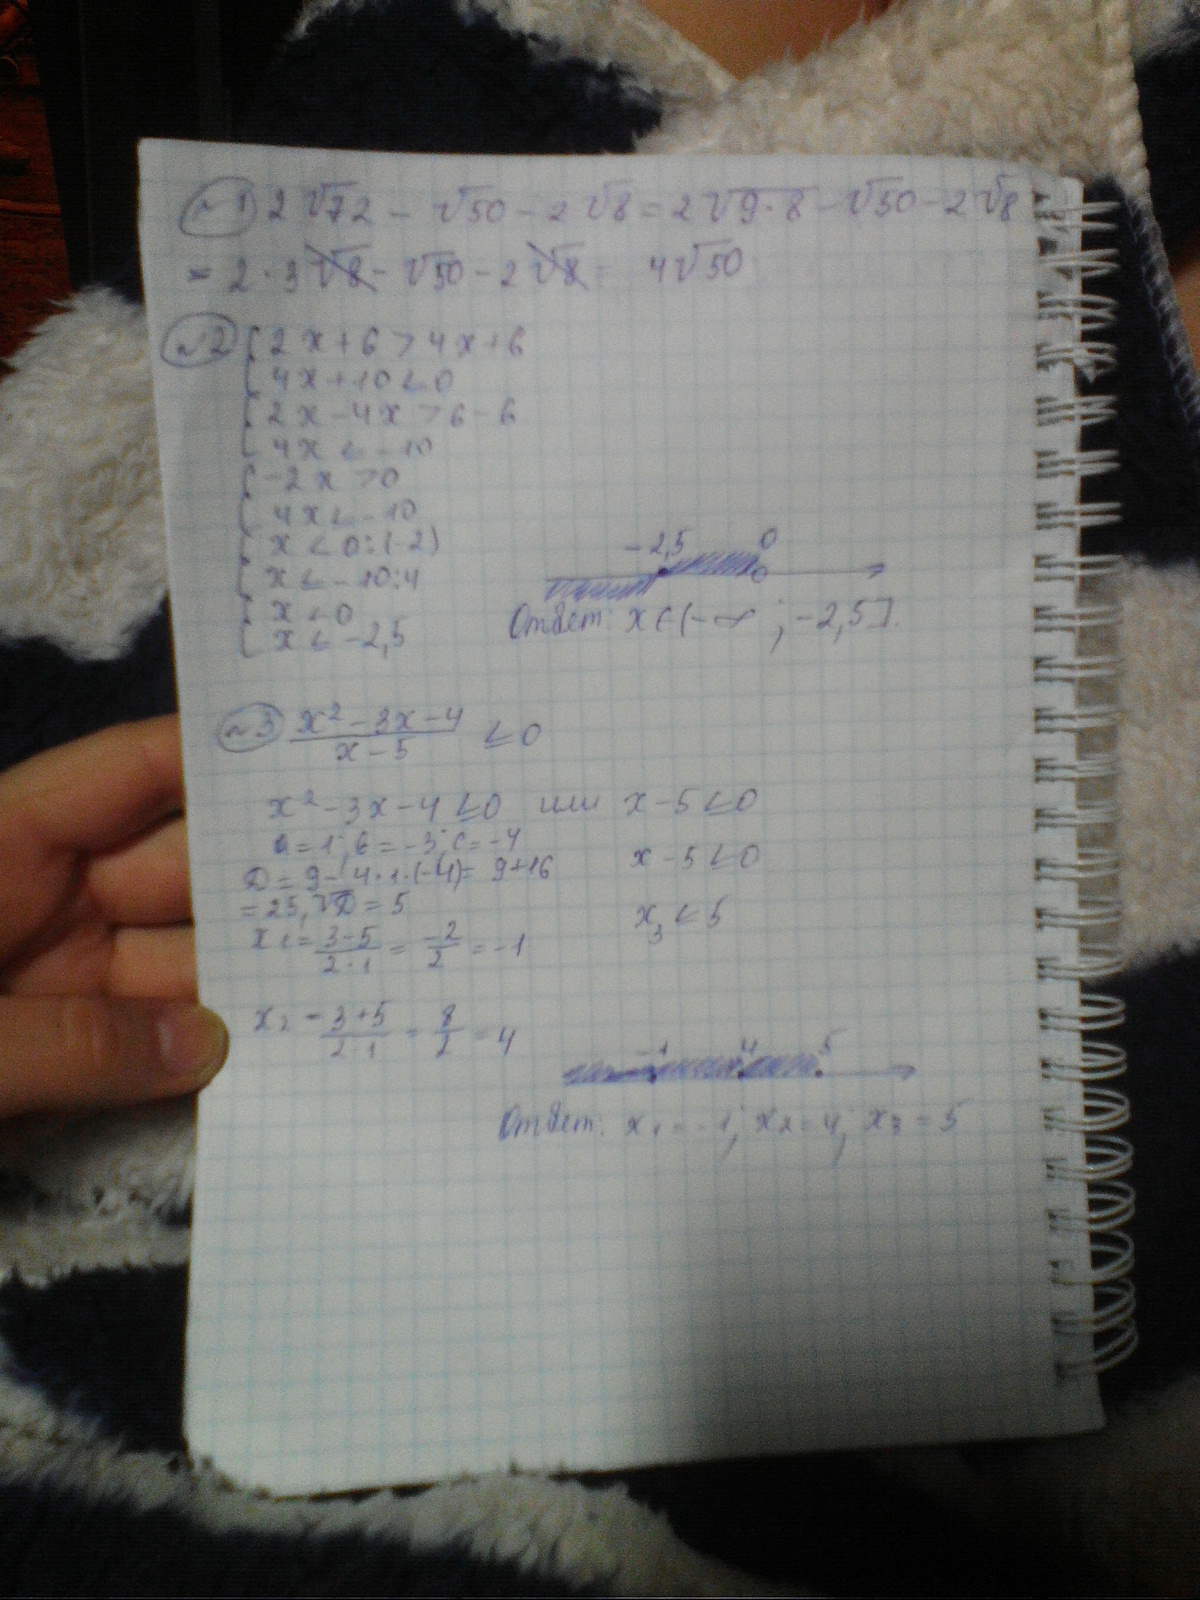 №1 2√72 - √50 - 2√8 = 2√9·8 - √50 - 2√8
= 2·3√8 - √50 - 2√8 = 4√50
№2 { 2x+6 > 4x+6
4x+10 ≤ 0
{ 2x-4x > 6-6
4x ≤ -10
{ -2x > 0
4x ≤ -10
{ x < 0:(-2)
x ≤ -10:4
{ x < 0
x ≤ -2,5
-2,5 0
Ответ: x ∈ (-∞; -2,5].
№3 x²-3x-4 / x-5 ≤ 0
x²-3x-4 ≤ 0 или x-5 ≤ 0
a=1; b=-3; c=-4
x-5 ≤ 0
D = 9-4·1·(-4) = 9+16
= 25, √D = 5
x₃ ≤ 5
x₁ = 3-5 / 2·1 = -2 / 2 = -1
x₂ = 3+5 / 2·1 = 8 / 2 = 4
-1 4 5
Ответ: x₁ = -1; x₂ = 4; x₃ = 5